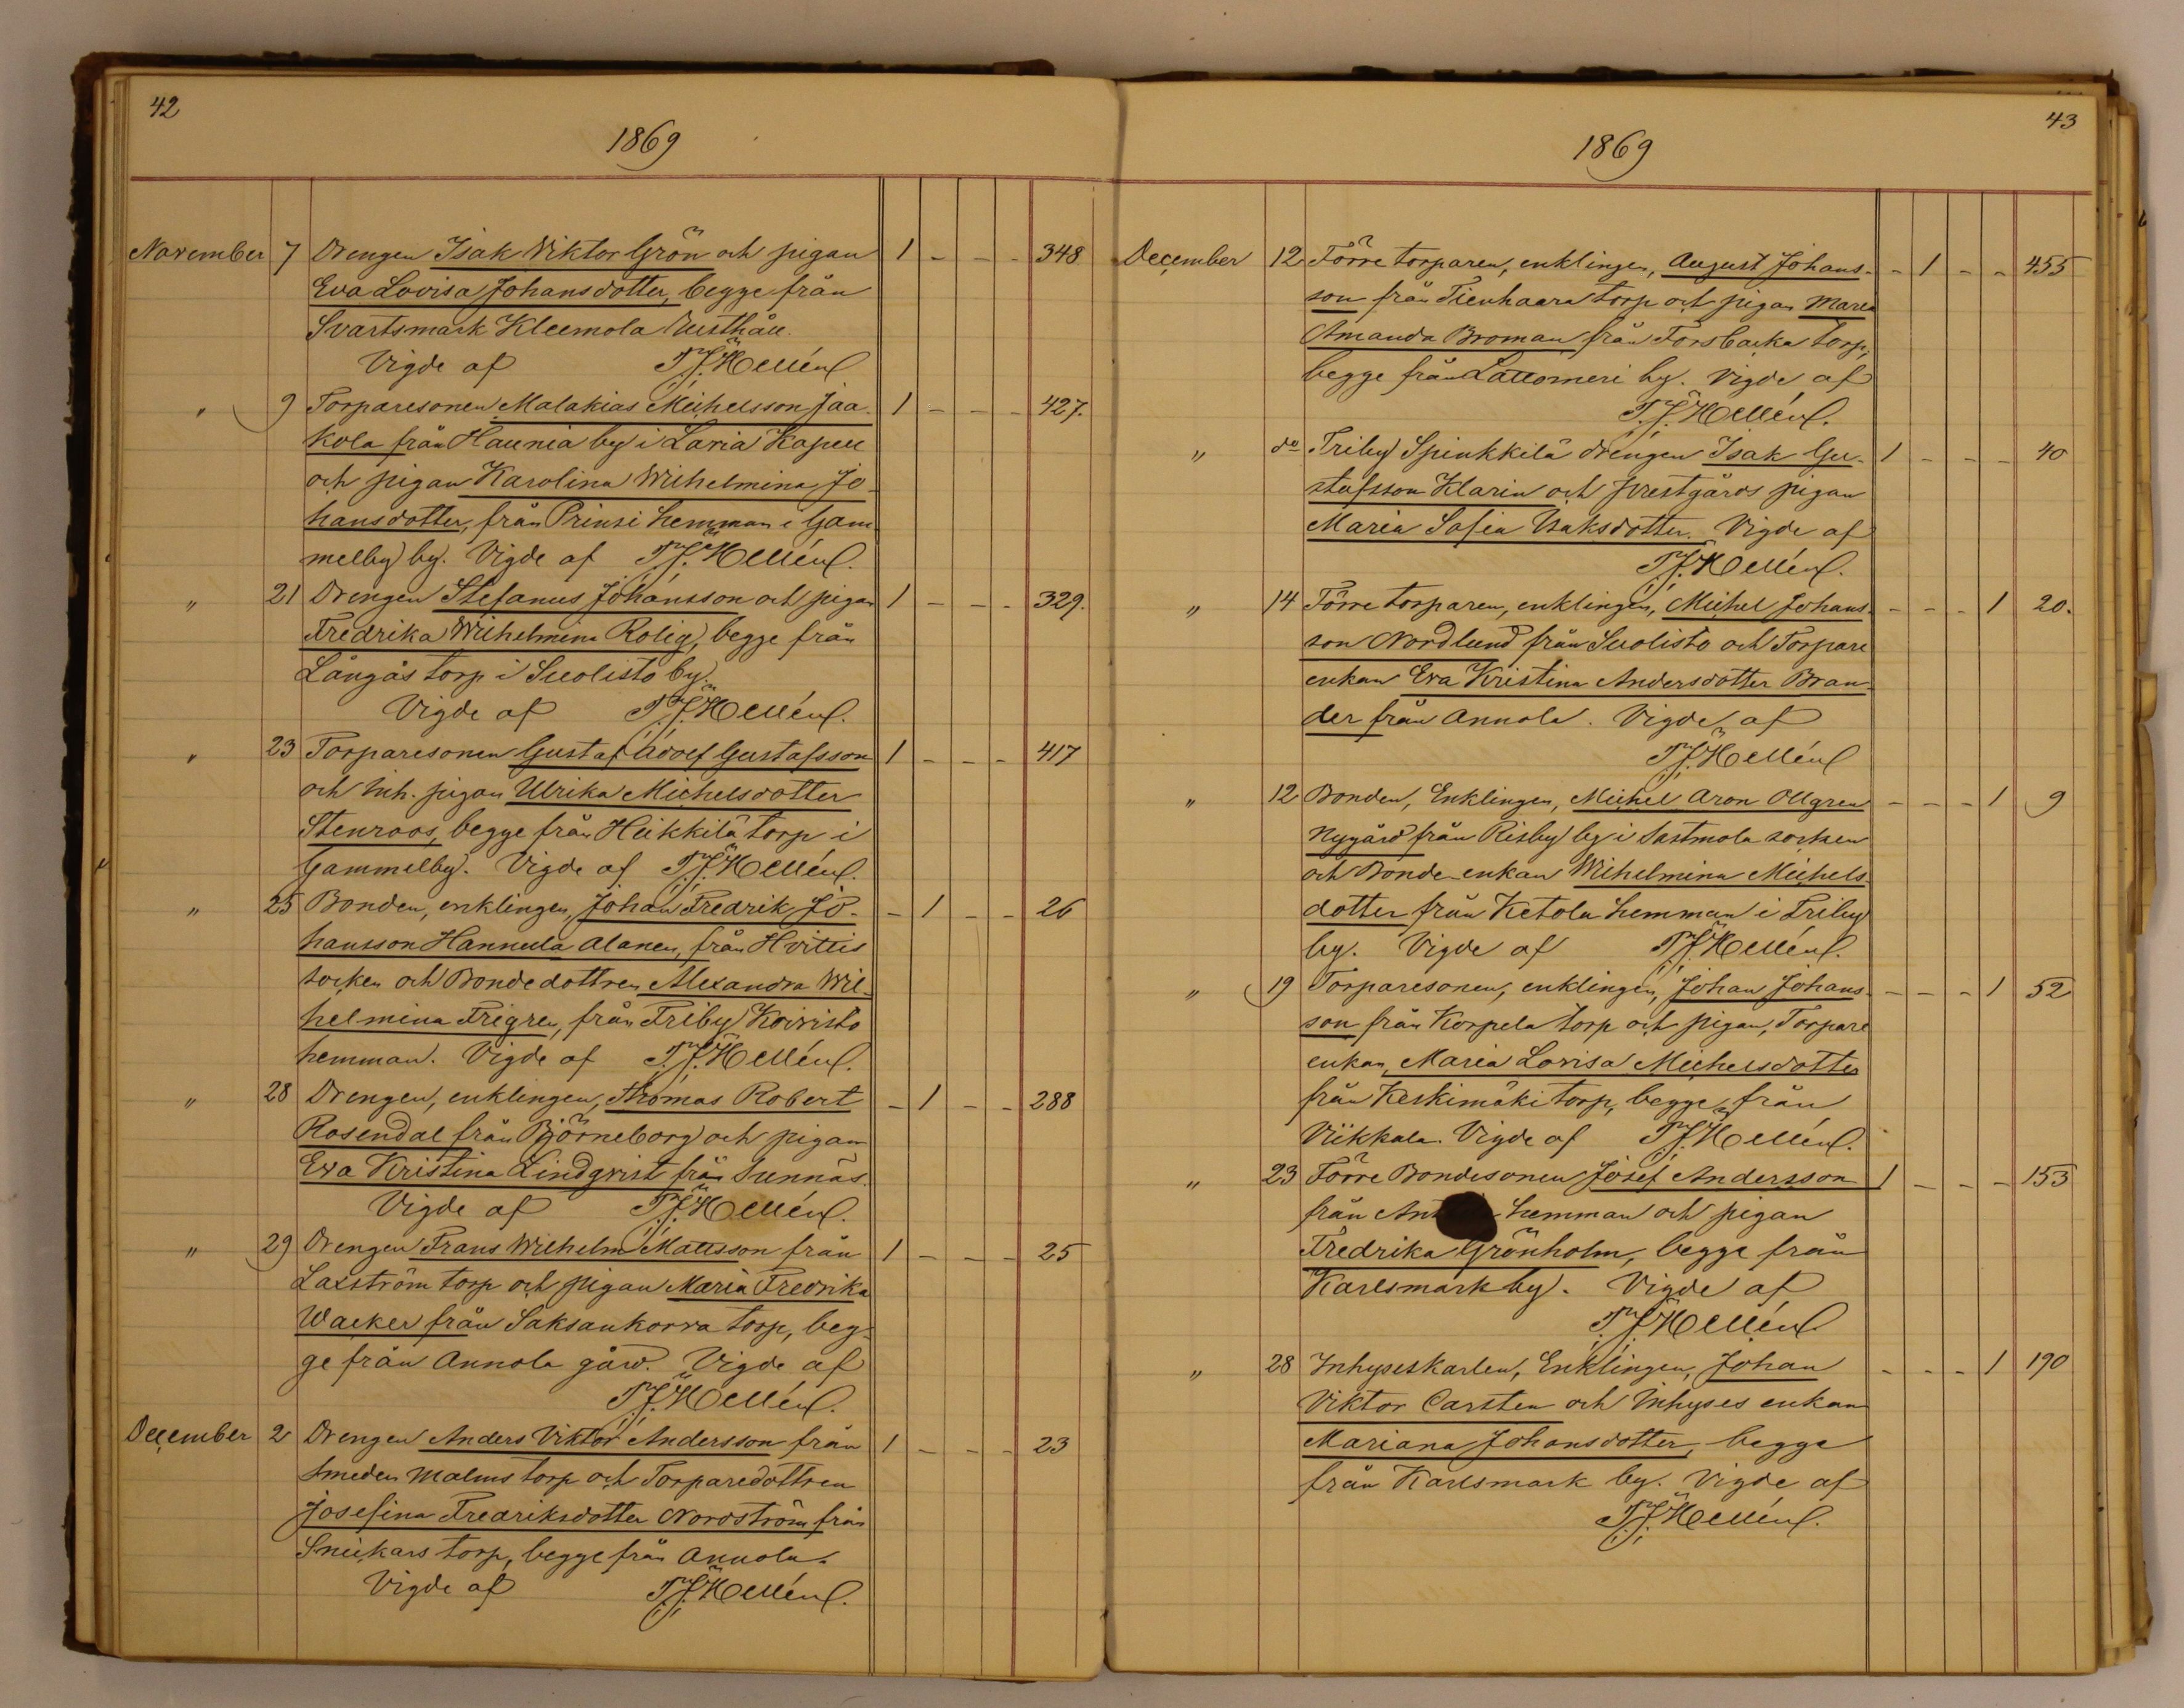 42
1869
November 7 Drengen Isak Viktor Grön och pigan 1 - - - 348
Eva Lovisa Johansdotter, begge från
Svartsmark Kleemola Rusthåll.
Vigde af T.J. Hellén.
" 9 Torparesonen Malakias Michelsson Jaa- 1 - - - 427.
kola från Haunia by i Lavia Kapell
och pigan Karolina Wilhelmina Jo-
hansdotter, från Prinsi hemman i Gam
melby by. Vigde af T.J. Hellén.
" 21 Drengen Stefanus Johansson och pigan 1 - - - 329.
Fredrika Wilhelmina Rolig, begge från
Långås torp i Suolisto by.
Vigde af T.J. Hellén.
" 23 Torparesonen Gustaf Adolf Gustafsson 1 - - - 417
och Inh. pigan Ulrika Michelsdotter
Stenroos, begge från Heikkilä torp i
Gammelby. Vigde af T.J. Hellén.
" 25 Bonden, enklingen, Johan Fredrik Jo- - 1 - - 26
hansson Hannula Alanen, från Hvittis
socken och Bondedottren Alexandra Wil-
helmina Frigren, från Friby Koivisto
hemman. Vigde af T.J. Hellén.
" 28 Drengen, enklingen, Thomas Robert - 1 - - 288
Rosendal från Björneborg och pigan
Eva Kristina Lindqvist från Sunnäs.
Vigde af T.J. Hellén.
" 29 Drengen Frans Wilhelm Mattsson från 1 - - - 25
Laxström torp och pigan Maria Fredrika
Wacker från Saksankorva torp, beg-
ge från Annola gård. Vigde af
T.J. Hellén.
December 2 Drengen Anders Viktor Andersson från 1 - - - 23
Smeden Malms torp och Torparedottren
Josefina Fredriksdotter Nordström från
Snickars torp, begge från Annola.
Vigde af T.J. Hellén.
43
1869
December 12 Förre torparen, enklingen, August Johans- - 1 - - 455
son från Tienhaara torp och pigan Maria
Amanda Broman från Forsbacka torp,
begge från Lattomeri by. Vigde af
T.J. Hellén.
" do Friby Spinkkilä drengen Isak Gu- 1 - - - 40
stafsson Klarin och Prestgårds pigan
Maria Sofia Isaksdotter. Vigde af
T.J. Hellén.
" 14 Förre torparen, enklingen, Michel Johans- - - - 1 20.
son Nordlund från Suolisto och Torpare
enkan Eva Kristina Andersdotter Bran-
der från Annola. Vigde af
T.J. Hellén
" 12 Bonden, Enklingen, Michel Aron Ollgren - - - 1 9
Nygård från Risby by i Sastmola socken
och Bonde enkan Wilhelmina Michels-
dotter från Ketola hemman i Friby
by. Vigde af T.J. Hellén.
" 19 Torparesonen, enklingen, Johan Johans- - - - 1 52
son från Korpela torp och pigan, Torpare
enkan, Maria Lovisa Michelsdotter
från Keskimäki torp, begge från
Viikkala. Vigde af T.J. Hellén.
" 23 Förre Bondesonen Josef Andersson 1 - - - 153
från hemman och pigan
Fredrika Grönholm, begge från
Karlsmark by. Vigde af
T.J. Hellén.
" 28 Inhyseskarlen, Enklingen, Johan - - - 1 190
Viktor Carsten och Inhyses enkan
Mariana Johansdotter, begge
från Karlsmark by. Vigde af
T.J. Hellén.